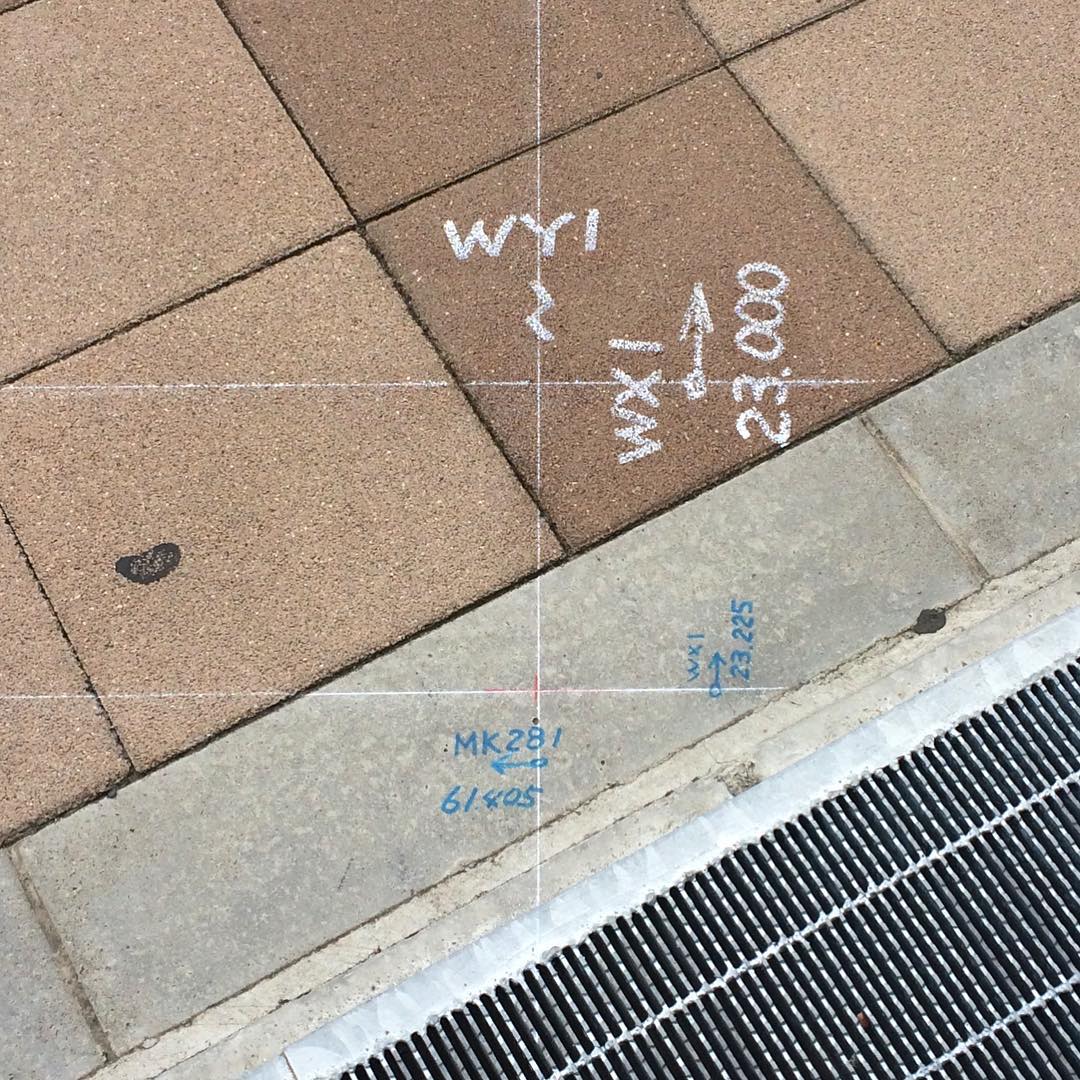 WY1
WX1
23.000
WX1
23.225
MK281
61405